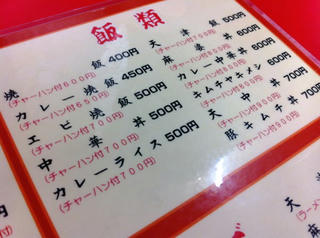 飯類
焼飯 400円
(チャーハン付600円)
カレー焼飯 450円
(チャーハン付650円)
エビ焼飯 500円
(チャーハン付700円)
中華丼 500円
(チャーハン付700円)
カレーライス 500円
(チャーハン付700円)
天津飯 500円
(チャーハン付700円)
麻婆丼 600円
(チャーハン付800円)
カレー中華丼 600円
(チャーハン付800円)
キムチャメシ 600円
(チャーハン付800円)
天中丼 700円
(チャーハン付900円)
豚キムチ丼 700円
(チャーハン付900円)